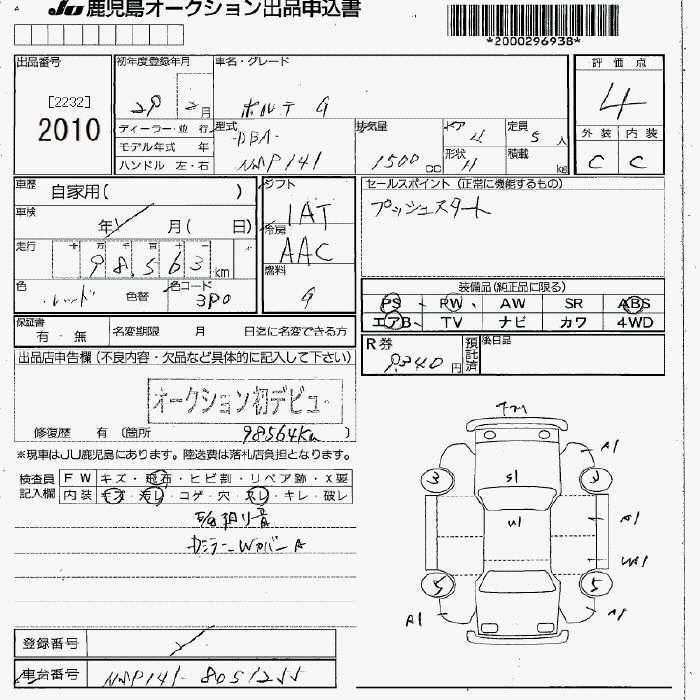 JU 鹿児島オークション出品申込書
*2000296938*
出品番号
[2232]
2010
初年度登録年月
29 2 月
車名・グレード
ポルテ G
評価点
4
ディーラー・並 行
モデル年式 年
ハンドル 左・右
型式
DBA-
NSP141
排気量
1500 CC
ドア 4
形状
定員 5 人
積載 kg
外装 内装
C C
車歴
自家用( )
車検
年 月( 日)
走行
十 万 千 百 十 一
98563 km
色
レッド
色替
色コード
3P0
シフト
IAT
冷房
AAC
燃料
G
セールスポイント (正常に機能するもの)
プッシュスタート
装備品(純正品に限る)
PS RW AW SR ABS
エアB TV ナビ カワ 4WD
保証書
有 - 無
名変期限 月 日迄に名変できる方
R券
9340 円
預託済
後日品
出品店申告欄 (不良内容・欠品など具体的に記入して下さい)
オークション初デビュー
修復歴 有 (箇所 98564km )
※現車はJU鹿児島にあります。陸送費は落札店負担となります。
検査員
記入欄
FW キズ・飛石・ヒビ割・リペア跡・X要
内装 キズ・汚レ・コゲ・穴・スレ・キレ・破レ
Dミラーwカバー A
A1
3 S1 3
U1 A1
5 5
A1 A1
登録番号
車台番号 NSP141-8051255